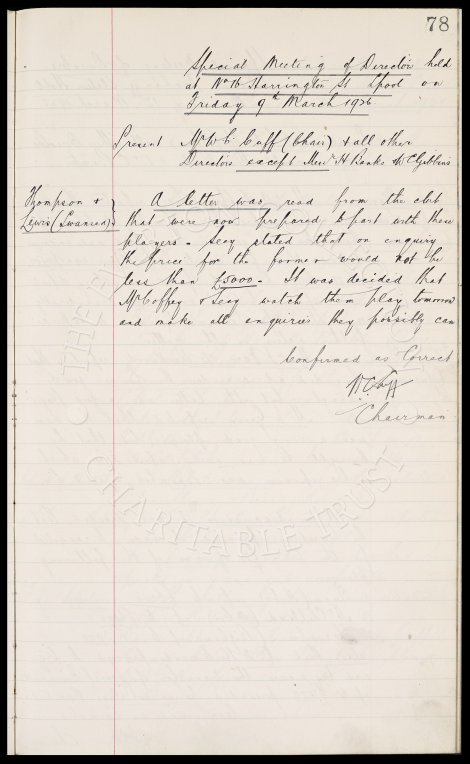 78
Special Meeting of Directors held
at No 16 Harrington St L'pool on
Friday 9th March 1926
Present Mr W C Cuff (Chair) & all other
Directors except Mess H Banks & W C Gibbins
Thompson &
Lewis (Swansea)
A letter was read from the club
that were now prepared to part with these
players - Secy stated that on enquiry
the price for the former would not be
less than £5000 - It was decided that
Mr Coffey & Secy watch them play tomorrow
and make all enquiries they possibly can
Confirmed as Correct
W.C. Cuff
Chairman
CHARITABLE TRUST